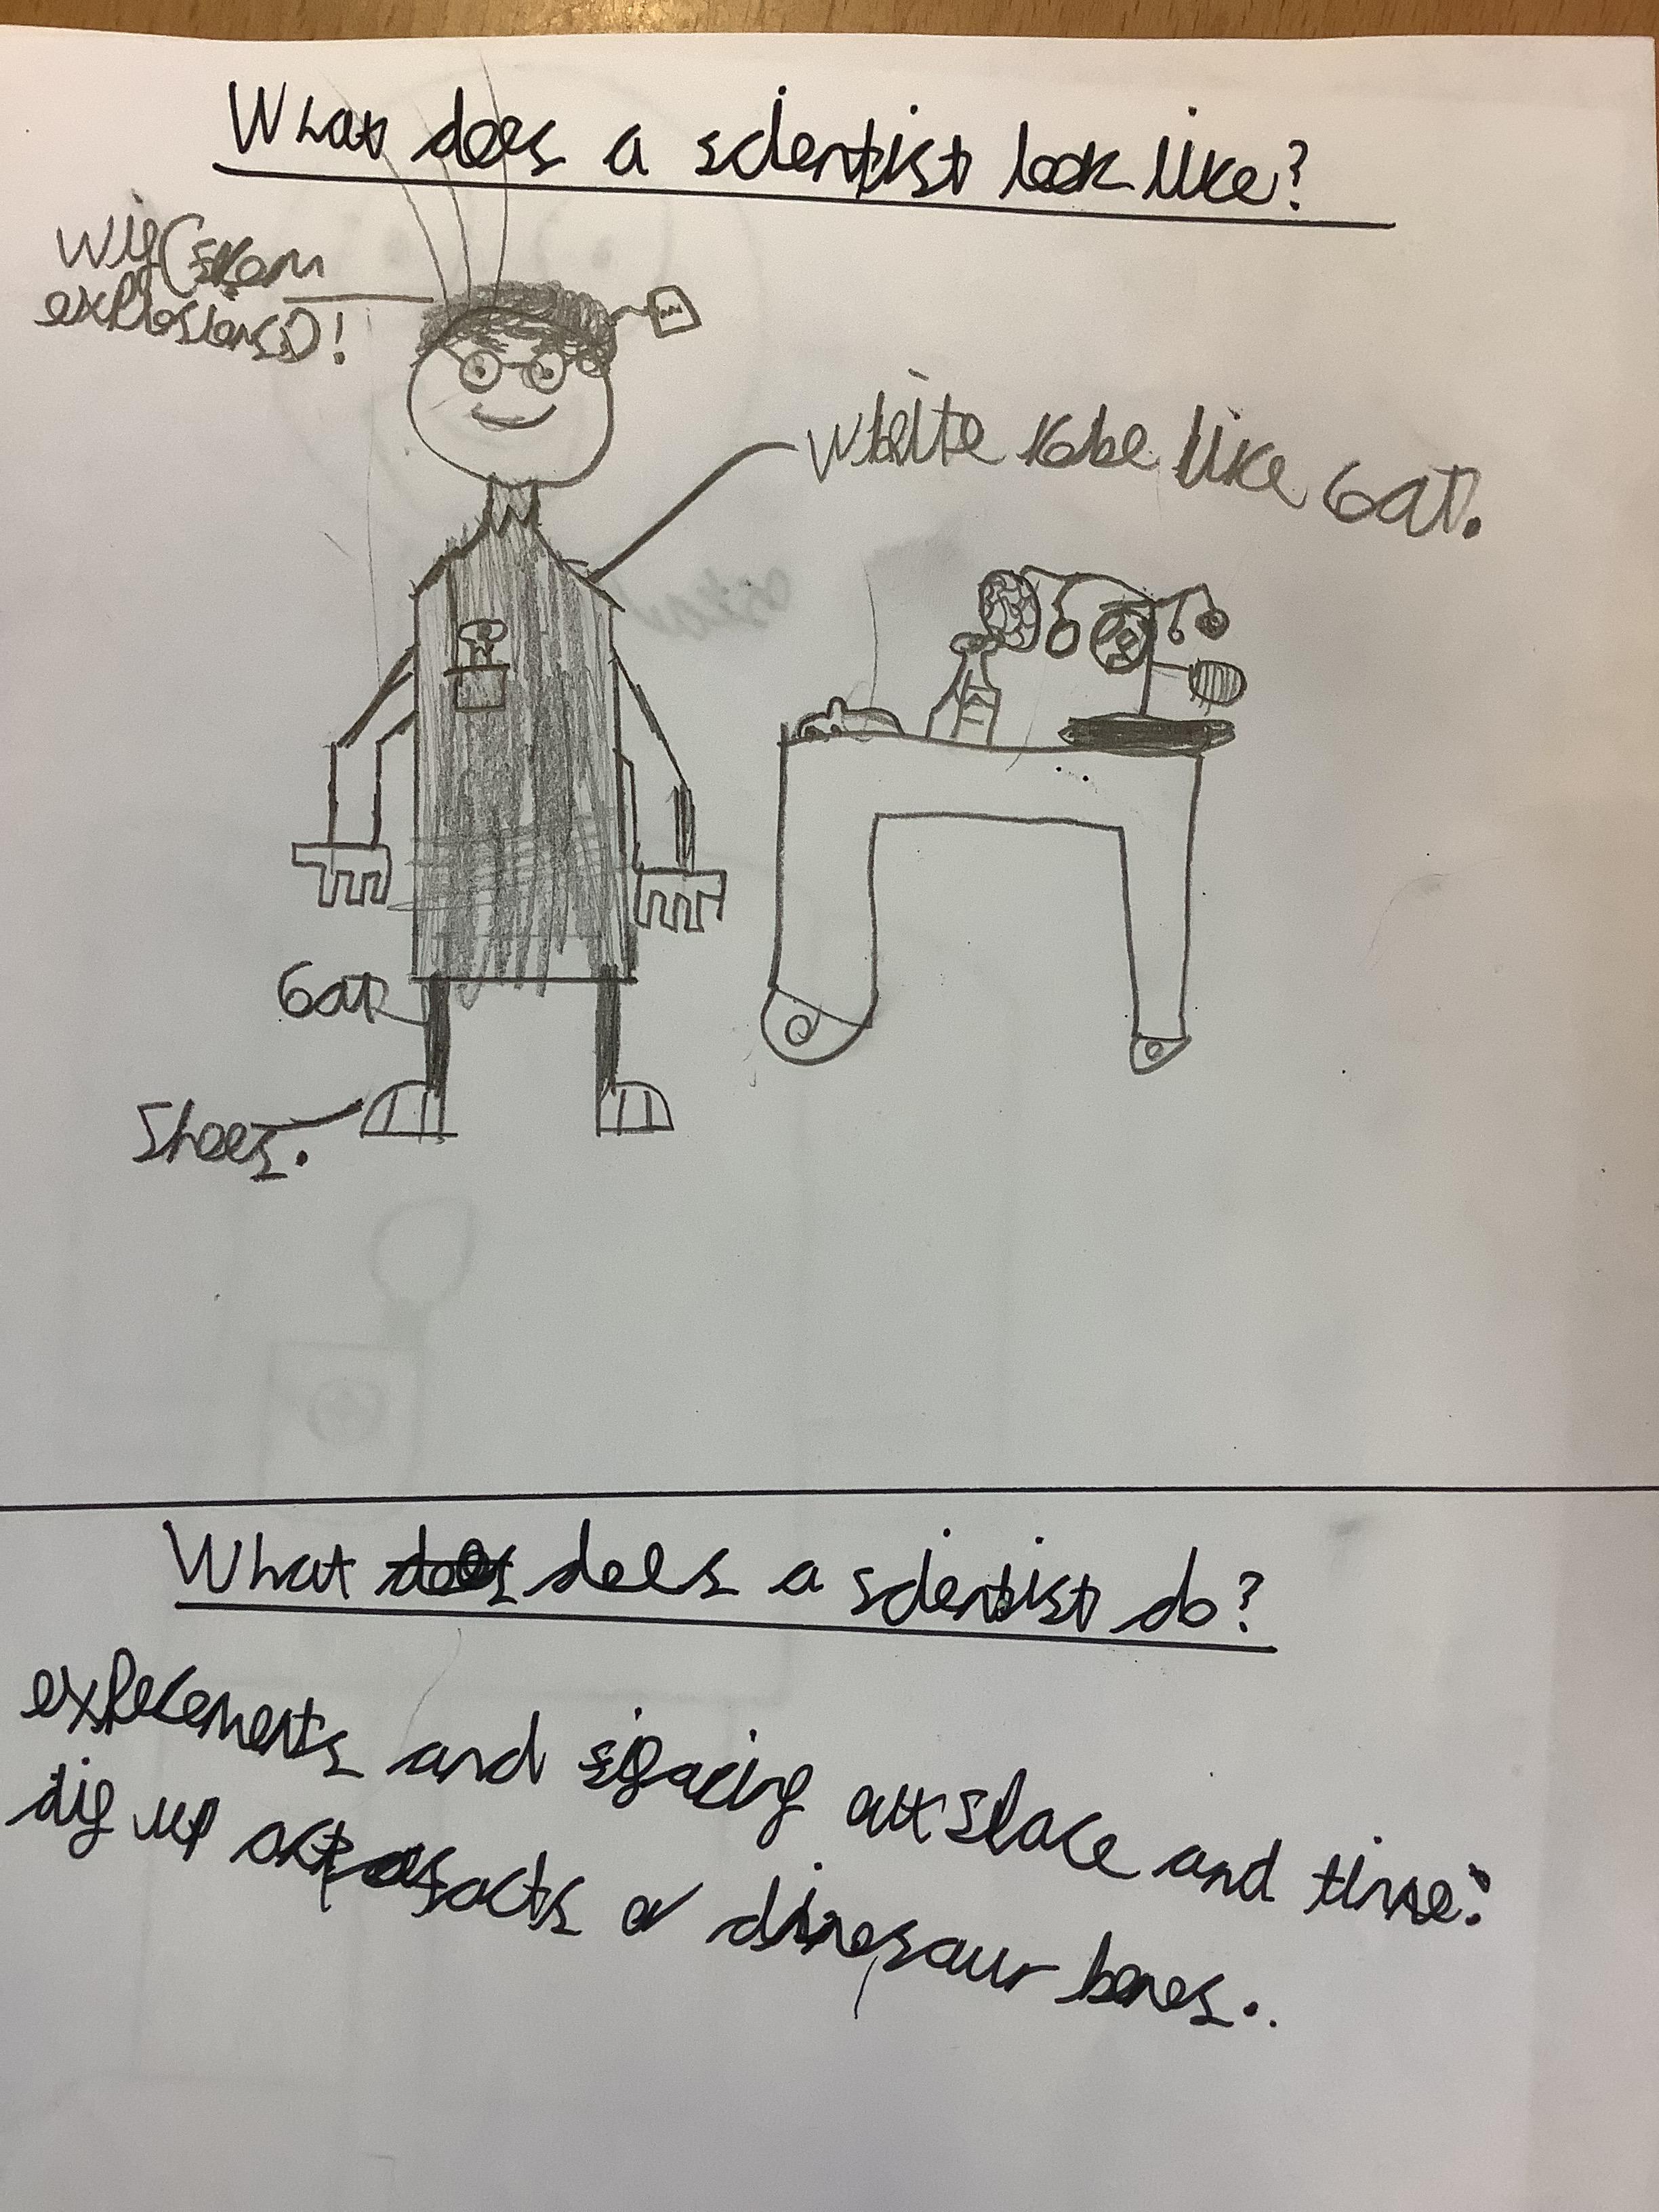 What does a scientist look like?
wig (from
explosions)!
white robe like coat.
coat
Shoes.
What does does a scientist do?
expecements and spacing out space and time.
dig up artofacts or dinosaur bones..